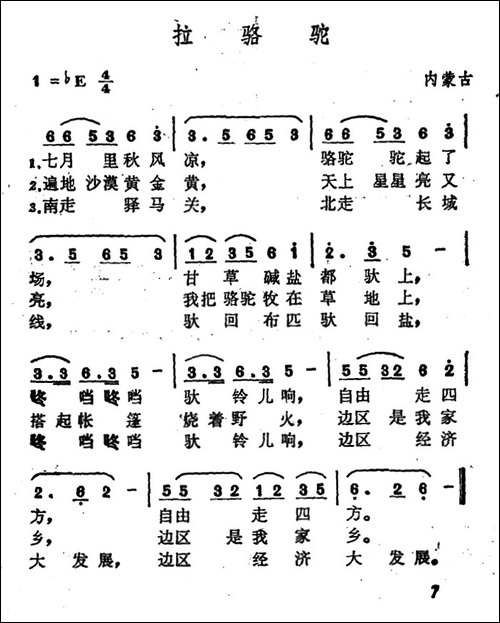 拉 骆 驼
1 = ♭E 4/4 内蒙古
66 53 6 3 | 3. 5 65 3 | 66 53 6 3 |
1.七月 里秋风 凉, 骆驼 驼起了
2.遍地 沙漠黄金 黄, 天上 星星亮又
3.南走 驿马 关, 北走 长城
3. 5 65 3 | 12 35 6 i | 2. 3 5 - |
场, 甘草碱盐 都驮上,
亮, 我把骆驼牧在 草地上,
线, 驮回布匹 驮回盐,
3.3 6.3 5 - | 3.3 6.3 5 - | 55 32 6 2 |
咚 当 咚 当 驮 铃儿响, 自由 走四
搭起帐 篷 烧着野 火, 边区 是我家
咚 当 咚 当 驮 铃儿响, 边区 经济
2. 6 2 - | 55 32 12 35 | 6. 2 6 - ‖
方, 自由 走 四 方。
乡, 边区 是我家 乡。
大 发展, 边区 经 济 大 发展。
7